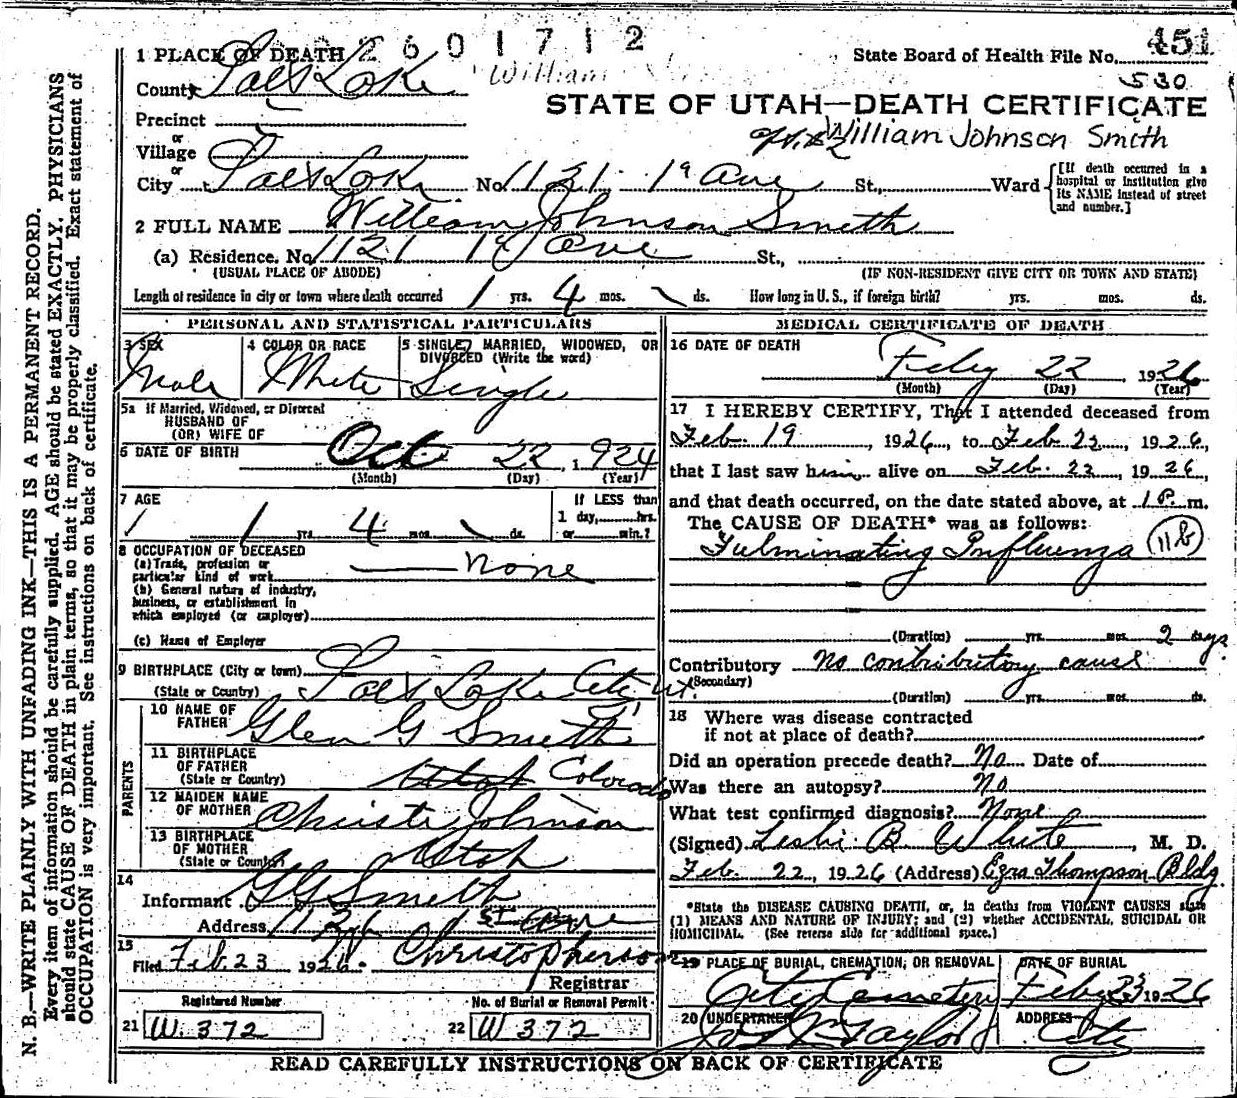 2601712
State Board of Health File No. 451
William
530
1 PLACE OF DEATH
County Salt Lake
STATE OF UTAH—DEATH CERTIFICATE
Precinct
William Johnson Smith
or
Village
or
City Salt Lake No. 1121 1st Ave St., Ward [If death occurred in a hospital or institution give its NAME instead of street and number.]
2 FULL NAME William Johnson Smith
(a) Residence. No. 1121 1st Ave St.,
(USUAL PLACE OF ABODE) (IF NON-RESIDENT GIVE CITY OR TOWN AND STATE)
Length of residence in city or town where death occurred 1 yrs. 4 mos. ds. How long in U. S., if foreign birth? yrs. mos. ds.
PERSONAL AND STATISTICAL PARTICULARS
3 SEX
Male
4 COLOR OR RACE
White
5 SINGLE, MARRIED, WIDOWED, OR DIVORCED (Write the word)
Single
5a If Married, Widowed, or Divorced
HUSBAND OF
(OR) WIFE OF
6 DATE OF BIRTH Oct 22, 1924
(Month) (Day) (Year)
7 AGE
1 yrs. 4 mos. ds.
If LESS than
1 day, hrs.
or min.?
8 OCCUPATION OF DECEASED
(a) Trade, profession or
particular kind of work None
(b) General nature of industry,
business, or establishment in
which employed (or employer)
(c) Name of Employer
9 BIRTHPLACE (City or town) Salt Lake City Ut.
(State or Country)
PARENTS
10 NAME OF
FATHER Glen G Smith
11 BIRTHPLACE
OF FATHER
(State or Country) Utah Colorado
12 MAIDEN NAME
OF MOTHER Christe Johnson
13 BIRTHPLACE
OF MOTHER
(State or Country) Utah
14
Informant G G Smith
Address 1126 1st Ave
15
Filed Feb 23 1926. Christopherson
Registrar
Registered Number
21 W. 372
No. of Burial or Removal Permit
22 W 372
MEDICAL CERTIFICATE OF DEATH
16 DATE OF DEATH
Feby 22, 1926
(Month) (Day) (Year)
17 I HEREBY CERTIFY, That I attended deceased from
Feb. 19, 1926, to Feb 22, 1926,
that I last saw him alive on Feb. 22, 1926,
and that death occurred, on the date stated above, at 1 P. m.
The CAUSE OF DEATH* was as follows:
Fulminating Influenza 11b
(Duration) yrs. mos. 2 days.
Contributory No contributory cause
(Secondary)
(Duration) yrs. mos. ds.
18 Where was disease contracted
if not at place of death?
Did an operation precede death? No Date of
Was there an autopsy? No
What test confirmed diagnosis? None
(Signed) Leslie B. White, M. D.
Feb. 22, 1926 (Address) Ezra Thompson Bldg.
*State the DISEASE CAUSING DEATH, or, in deaths from VIOLENT CAUSES state
(1) MEANS AND NATURE OF INJURY; and (2) whether ACCIDENTAL, SUICIDAL OR
HOMICIDAL. (See reverse side for additional space.)
19 PLACE OF BURIAL, CREMATION, OR REMOVAL
City Cemetery
DATE OF BURIAL
Feby 23 1926
20 UNDERTAKER
Taylor
ADDRESS
City
READ CAREFULLY INSTRUCTIONS ON BACK OF CERTIFICATE
N. B.—WRITE PLAINLY WITH UNFADING INK—THIS IS A PERMANENT RECORD.
Every item of information should be carefully supplied. AGE should be stated EXACTLY. PHYSICIANS
should state CAUSE OF DEATH in plain terms, so that it may be properly classified. Exact statement of
OCCUPATION is very important. See instructions on back of certificate.